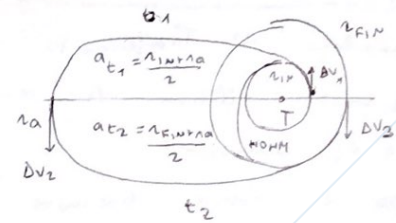 t₁
r_FIN
a_t₁ = r_IN + r_a / 2
r_IN
ΔV₁
r_a
T
a_t₂ = r_FIN + r_a / 2
HOHM
ΔV₃
ΔV₂
t₂